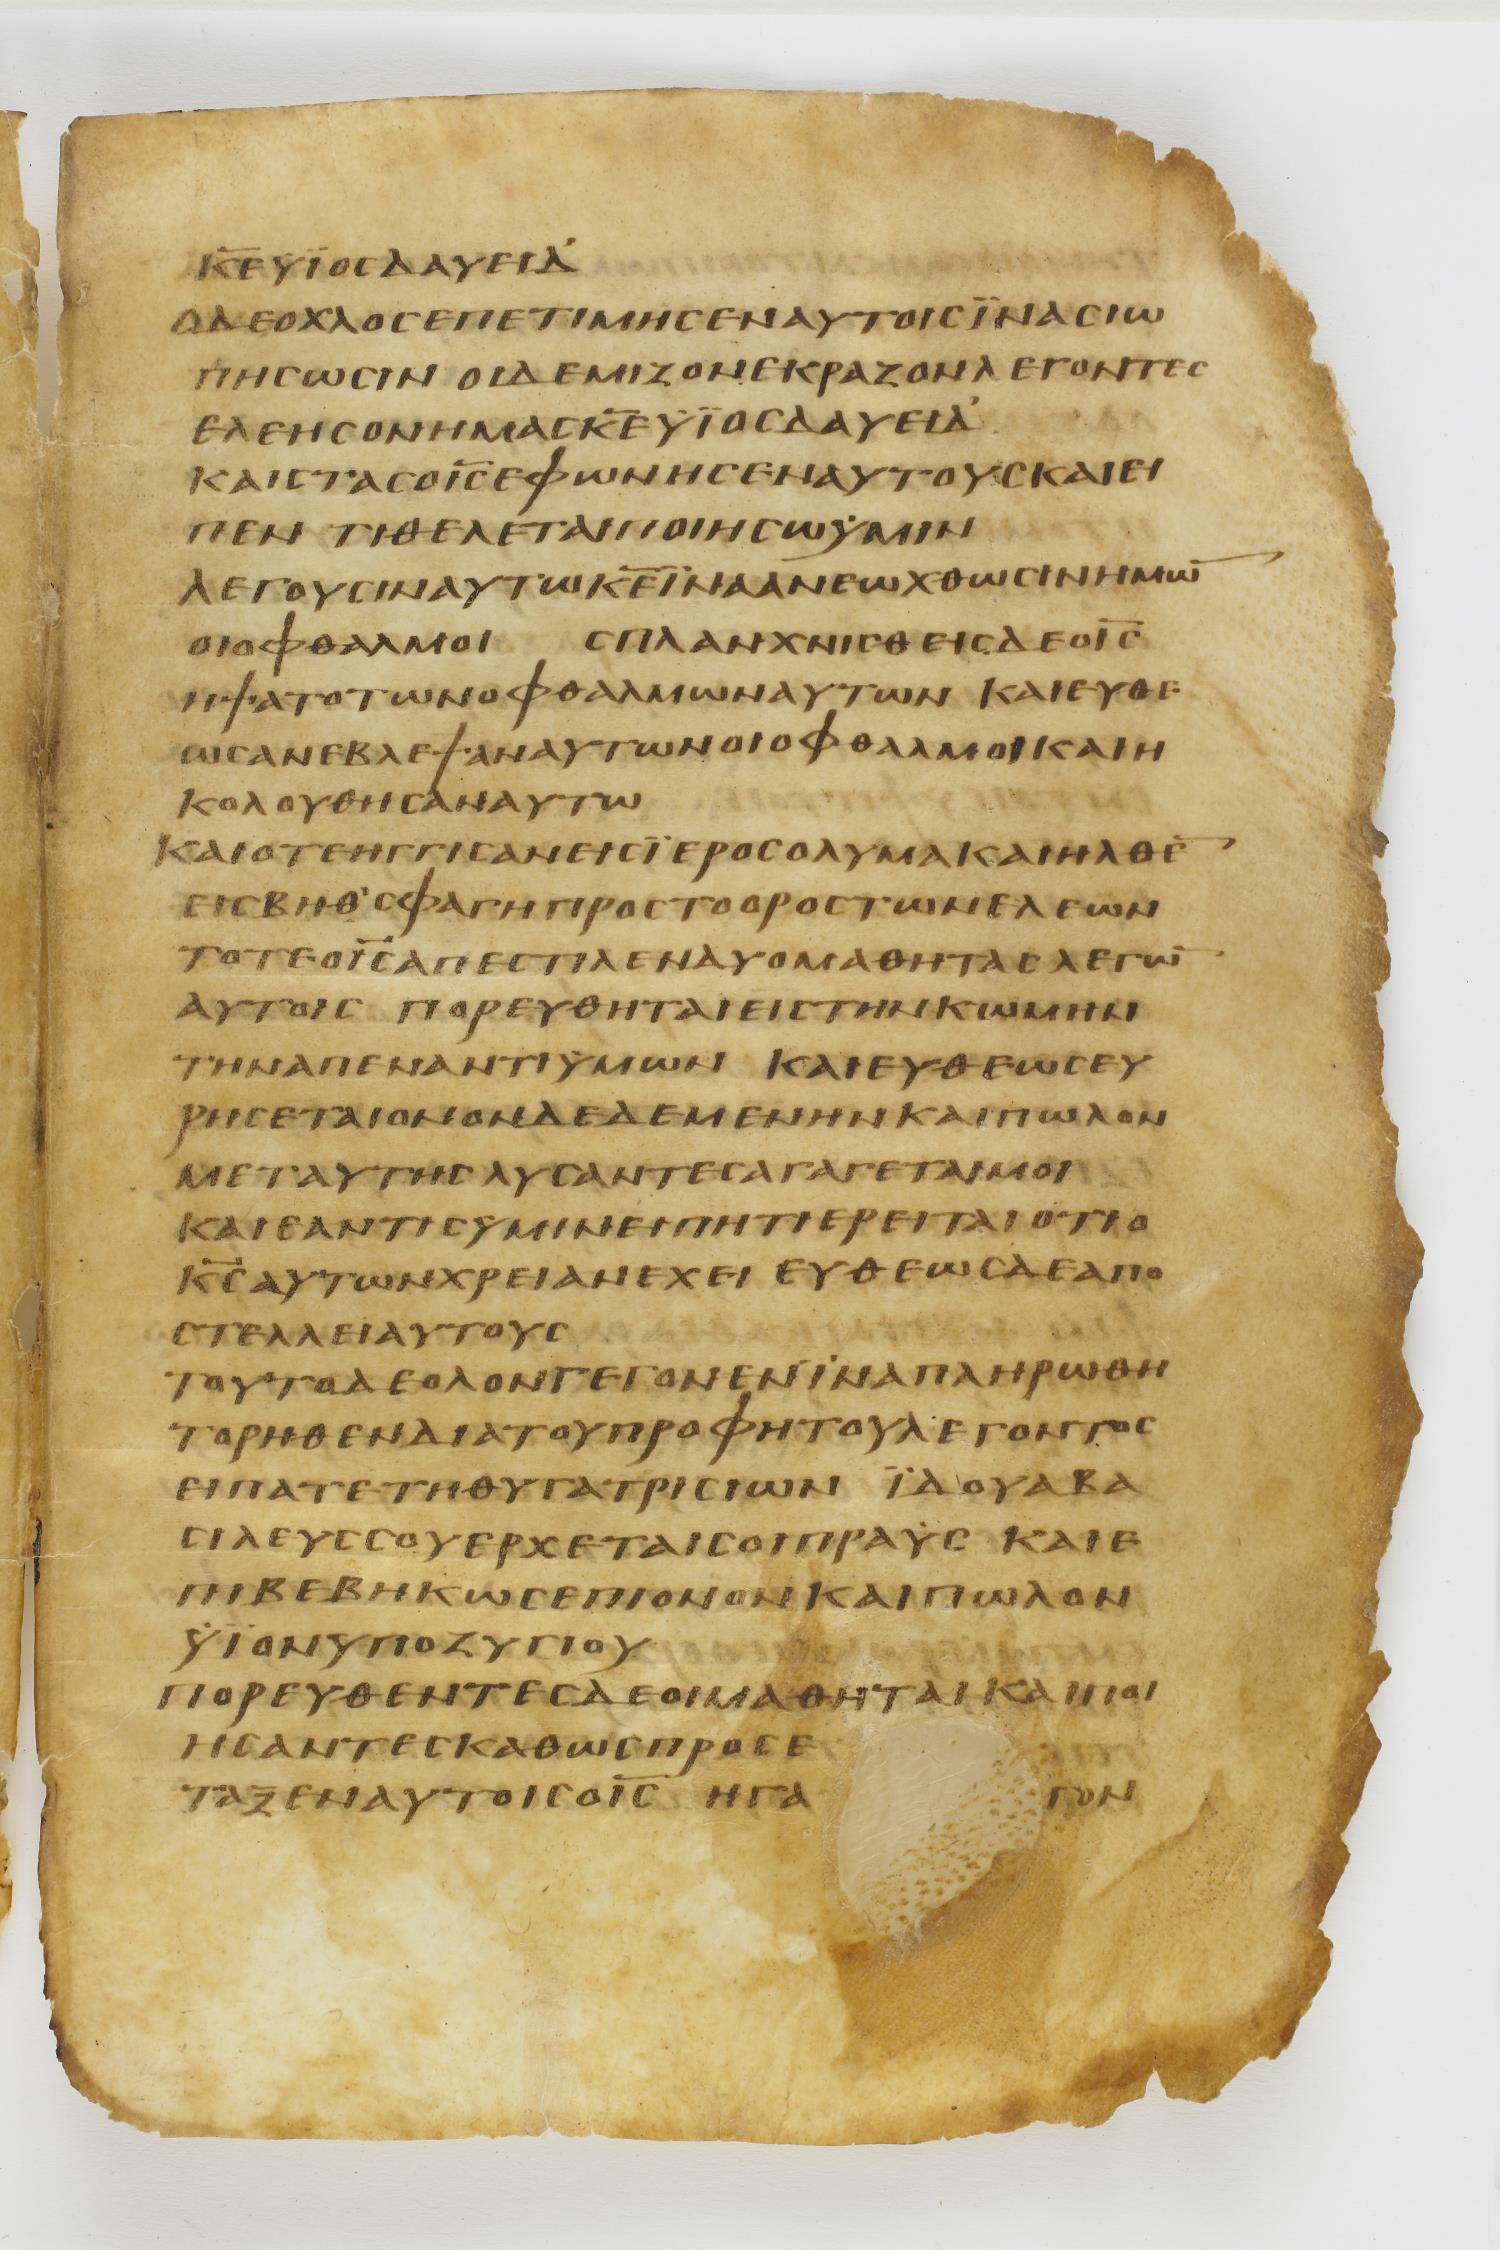 Κ̅Ε̅ ΥΪΟϹ ΔΑΥΕΙΔ
Ο ΔΕ ΟΧΛΟϹ ΕΠΕΤΙΜΗϹΕΝ ΑΥΤΟΙϹ ΪΝΑ ϹΙΩ
ΠΗϹΩϹΙΝ ΟΙ ΔΕ ΜΙΖΟΝ ΕΚΡΑΖΟΝ ΛΕΓΟΝΤΕϹ
ΕΛΕΗϹΟΝ ΗΜΑϹ Κ̅Ε̅ ΥΪΟϹ ΔΑΥΕΙΔ
ΚΑΙ ϹΤΑϹ Ο Ι̅Ϲ̅ ΕΦΩΝΗϹΕΝ ΑΥΤΟΥϹ ΚΑΙ ΕΙ
ΠΕΝ ΤΙ ΘΕΛΕΤΑΙ ΠΟΙΗϹΩ ΥΜΙΝ
ΛΕΓΟΥϹΙΝ ΑΥΤΩ Κ̅Ε̅ ΪΝΑ ΑΝΕΩΧΘΩϹΙΝ ΗΜΩ̅
ΟΙ ΟΦΘΑΛΜΟΙ ϹΠΛΑΝΧΝΙϹΘΕΙϹ ΔΕ Ο Ι̅Ϲ̅
ΗΨΑΤΟ ΤΩΝ ΟΦΘΑΛΜΩΝ ΑΥΤΩΝ ΚΑΙ ΕΥΘΕ
ΩϹ ΑΝΕΒΛΕΨΑΝ ΑΥΤΩΝ ΟΙ ΟΦΘΑΛΜΟΙ ΚΑΙ Η
ΚΟΛΟΥΘΗϹΑΝ ΑΥΤΩ
ΚΑΙ ΟΤΕ ΗΓΓΙϹΑΝ ΕΙϹ ΪΕΡΟϹΟΛΥΜΑ ΚΑΙ ΗΛΘΕ̅
ΕΙϹ ΒΗΘ᾿ϹΦΑΓΗ ΠΡΟϹ ΤΟ ΟΡΟϹ ΤΩΝ ΕΛΕΩΝ
ΤΟΤΕ Ο Ι̅Ϲ̅ ΑΠΕϹΤΙΛΕΝ ΔΥΟ ΜΑΘΗΤΑϹ ΛΕΓΩ̅
ΑΥΤΟΙϹ ΠΟΡΕΥΘΗΤΑΙ ΕΙϹ ΤΗΝ ΚΩΜΗΝ
ΤΗΝ ΑΠΕΝΑΝΤΙ ΥΜΩΝ ΚΑΙ ΕΥΘΕΩϹ ΕΥ
ΡΗϹΕΤΑΙ ΟΝΟΝ ΔΕΔΕΜΕΝΗΝ ΚΑΙ ΠΩΛΟΝ
ΜΕΤ ΑΥΤΗϹ ΛΥϹΑΝΤΕϹ ΑΓΑΓΕΤΑΙ ΜΟΙ
ΚΑΙ ΕΑΝ ΤΙϹ ΥΜΙΝ ΕΙΠΗ ΤΙ ΕΡΕΙΤΑΙ ΟΤΙ Ο
Κ̅Ϲ̅ ΑΥΤΩΝ ΧΡΕΙΑΝ ΕΧΕΙ ΕΥΘΕΩϹ ΔΕ ΑΠΟ
ϹΤΕΛΛΕΙ ΑΥΤΟΥϹ
ΤΟΥΤΟ ΔΕ ΟΛΟΝ ΓΕΓΟΝΕΝ ΪΝΑ ΠΛΗΡΩΘΗ
ΤΟ ΡΗΘΕΝ ΔΙΑ ΤΟΥ ΠΡΟΦΗΤΟΥ ΛΕΓΟΝΤΟϹ
ΕΙΠΑΤΕ ΤΗ ΘΥΓΑΤΡΙ ϹΙΩΝ ΪΔΟΥ Α ΒΑ
ϹΙΛΕΥϹ ϹΟΥ ΕΡΧΕΤΑΙ ϹΟΙ ΠΡΑΥϹ ΚΑΙ Ε
ΠΙΒΕΒΗΚΩϹ ΕΠΙ ΟΝΟΝ ΚΑΙ ΠΩΛΟΝ
ΥΪΟΝ ΥΠΟΖΥΓΙΟΥ
ΠΟΡΕΥΘΕΝΤΕϹ ΔΕ ΟΙ ΜΑΘΗΤΑΙ ΚΑΙ ΠΟΙ
ΗϹΑΝΤΕϹ ΚΑΘΩϹ ΠΡΟϹΕ
ΤΑΞΕΝ ΑΥΤΟΙϹ Ο Ι̅Ϲ̅ ΗΓΑ ΓΟΝ